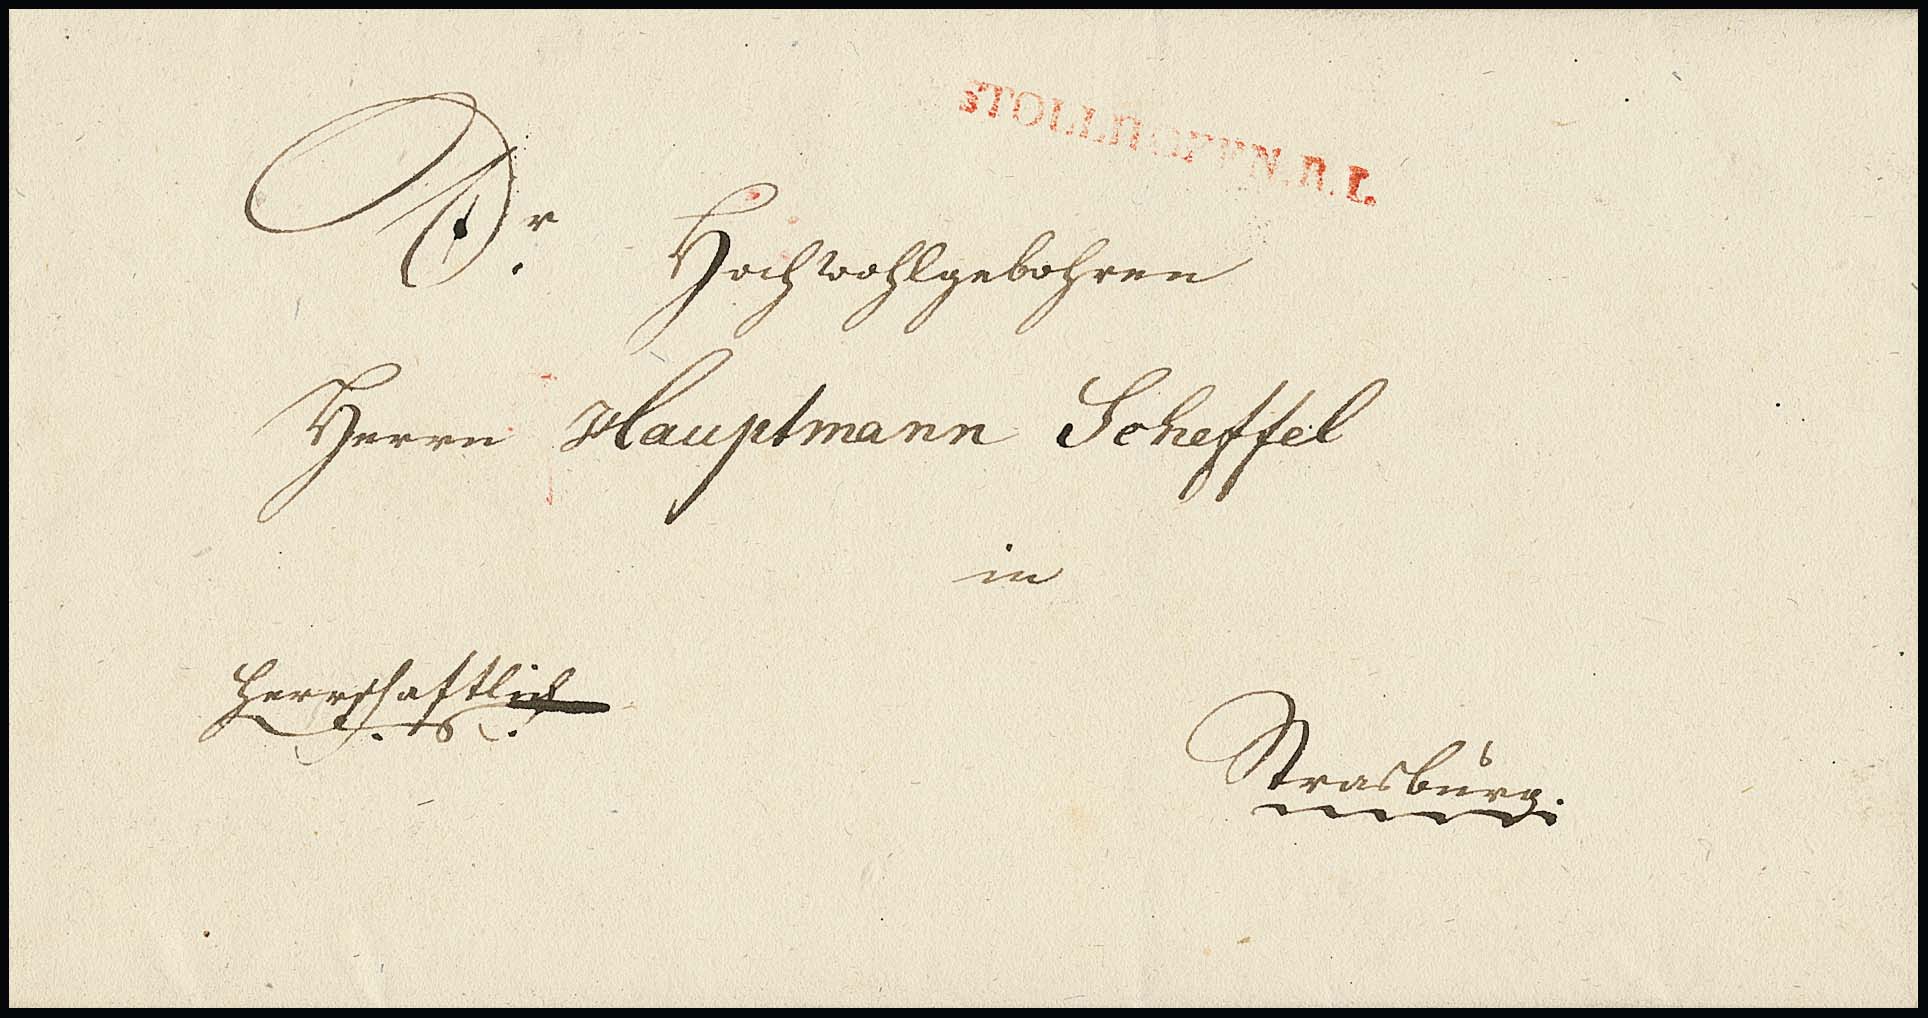 STOLLHOFEN.R.I.
Sr. Hochwohlgebohren
Herrn Hauptmann Scheffel
in
Herrschaftlich
Strasburg.